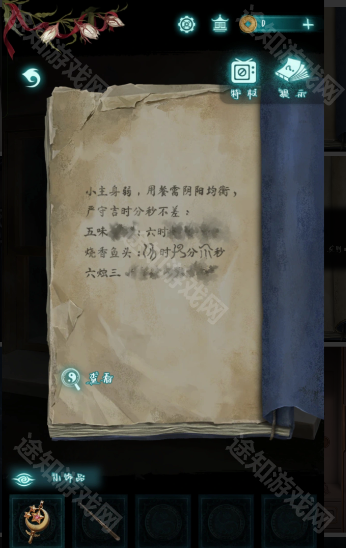 0
特权
提示
小主身弱，用餐需阴阳均衡，
严守吉时分秒不差：
五味 ：六时
烧香鱼头： 时 分 秒
六烛三
查看
小饰品
途知游戏网